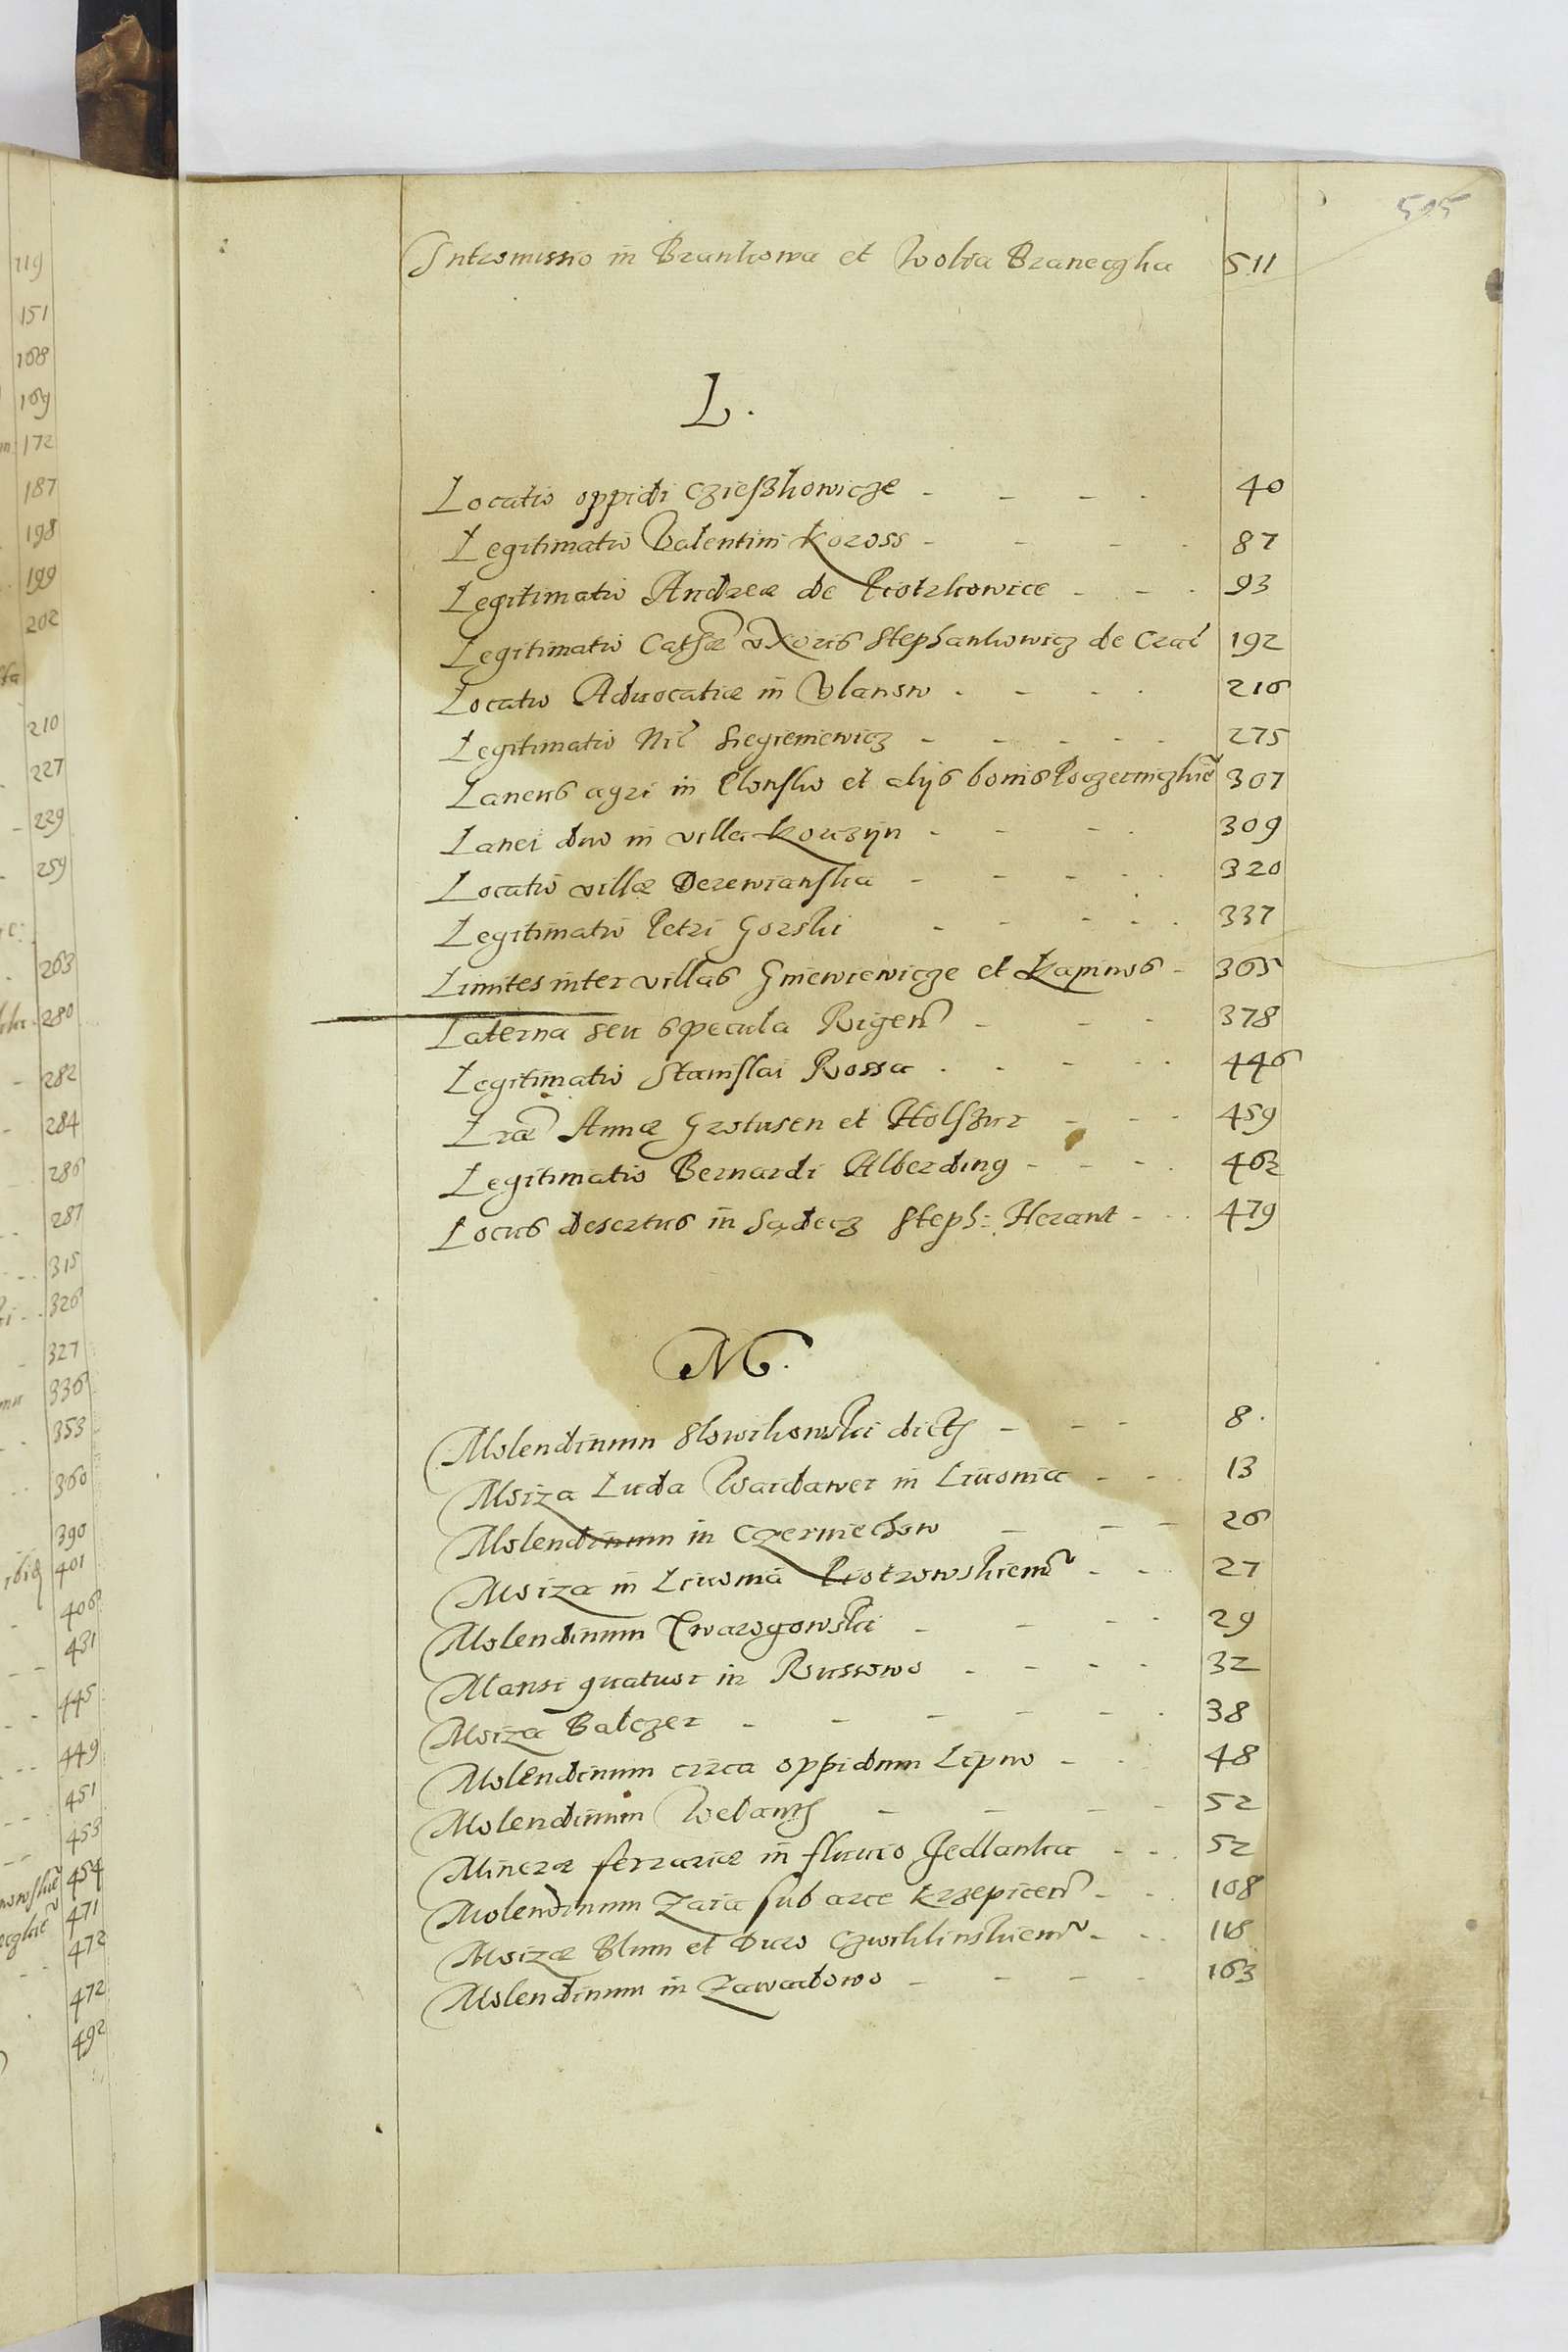 505
Intromissio in Brankowa et Wolia Braneczka 511
L.
Locatio oppidi Czieszkowicze - - - - 40
Legitimatio Valentini Koross - - - - 87
Legitimatio Andreæ de Piotrkowice - - - 93
Legitimatio Cathæ uxoris Stephankowicz de Crac 192
Locatio Advocatiæ in Ulanow - - - - 216
Legitimatio Nic Siegieniewicz - - - - - 275
Laneus agri in Plonsko et alijs bonis 307
Lanei duo in villa Korczyn - - - - 309
Locatio villæ Derewianska - - - - - 320
Legitimatio Petri Gorski - - - - - 337
Limites inter villas Gniewiewicze et Kapinos - 365
Laterna seu specula Rigen - - - 378
Legitimatio Stanislai Rossa - - - - - 446
Lræ Annæ Grotusen et Holszur - - - 459
Legitimatio Bernardi Alberding - - - - 462
Locus desertus in Sądecz Steph: Herant - - - 479
M.
Molendinum Slowikowski dict - - - 8.
Moiza Luda Wardawer in Livonia - - - 13
Molendinum in Czerniechow - - - 26
Moiza in Livonia Piotrowskiem - - - 27
Molendinum Twarogowski - - - - 29
Mansi quatuor in Russowo - - - - 32
Moiza Balczer - - - - - - 38
Molendinum circa oppidum Lipno - - 48
Molendinum - - - - 52
Mineræ ferrariæ in fluvio Jedlanka - - - 52
Molendinum Zara sub arce Krzepicen - - - 108
Moizæ Blum et Duro - - - 118
Molendinum in Zawadowo - - - - 163
119
151
168
169
172
187
198
199
202
210
227
229
259
263
280
282
284
286
287
315
326
327
336
353
360
390
ibid 401
406
431
445
449
451
453
454
471
472
472
492